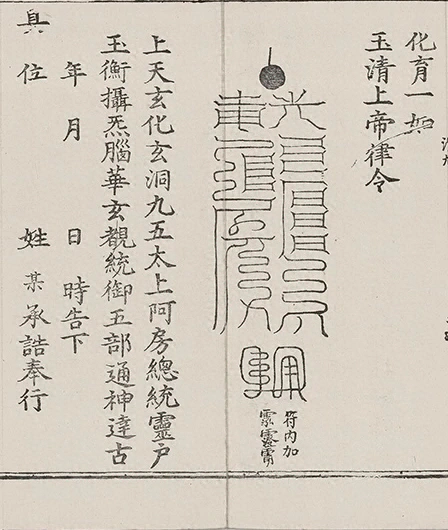 化育一如
玉清上帝律令
符內加
上天玄化玄洞九五太上阿房總統靈戶
玉衡攝炁腦華玄覩統御五部通神達古
年 月 日 時告下
具位 姓某承誥奉行